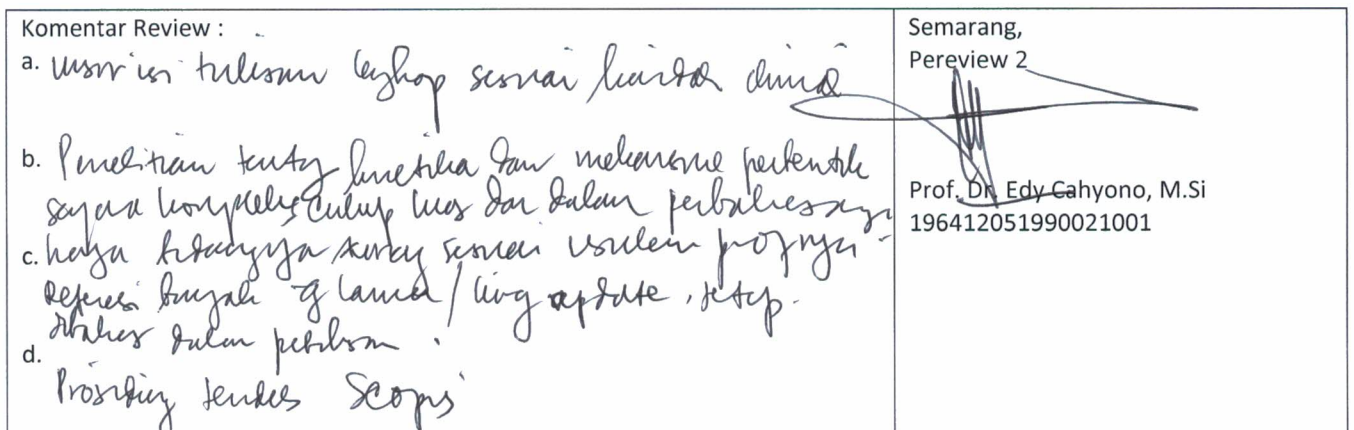 Komentar Review :
a. unsur isi tulisan lengkap sesuai
b. Penelitian tentang kinetika dan mekanisme
senyawa kompleks, cukup luas dan dalam pembahasannya
c. hanya bidangnya kurang sesuai usulan
Referensi banyak yg lama / kurang update, tetap
dibahas dalam
d.
Prosiding terindeks Scopus
Semarang,
Pereview 2
Prof. Dr. Edy Cahyono, M.Si
196412051990021001